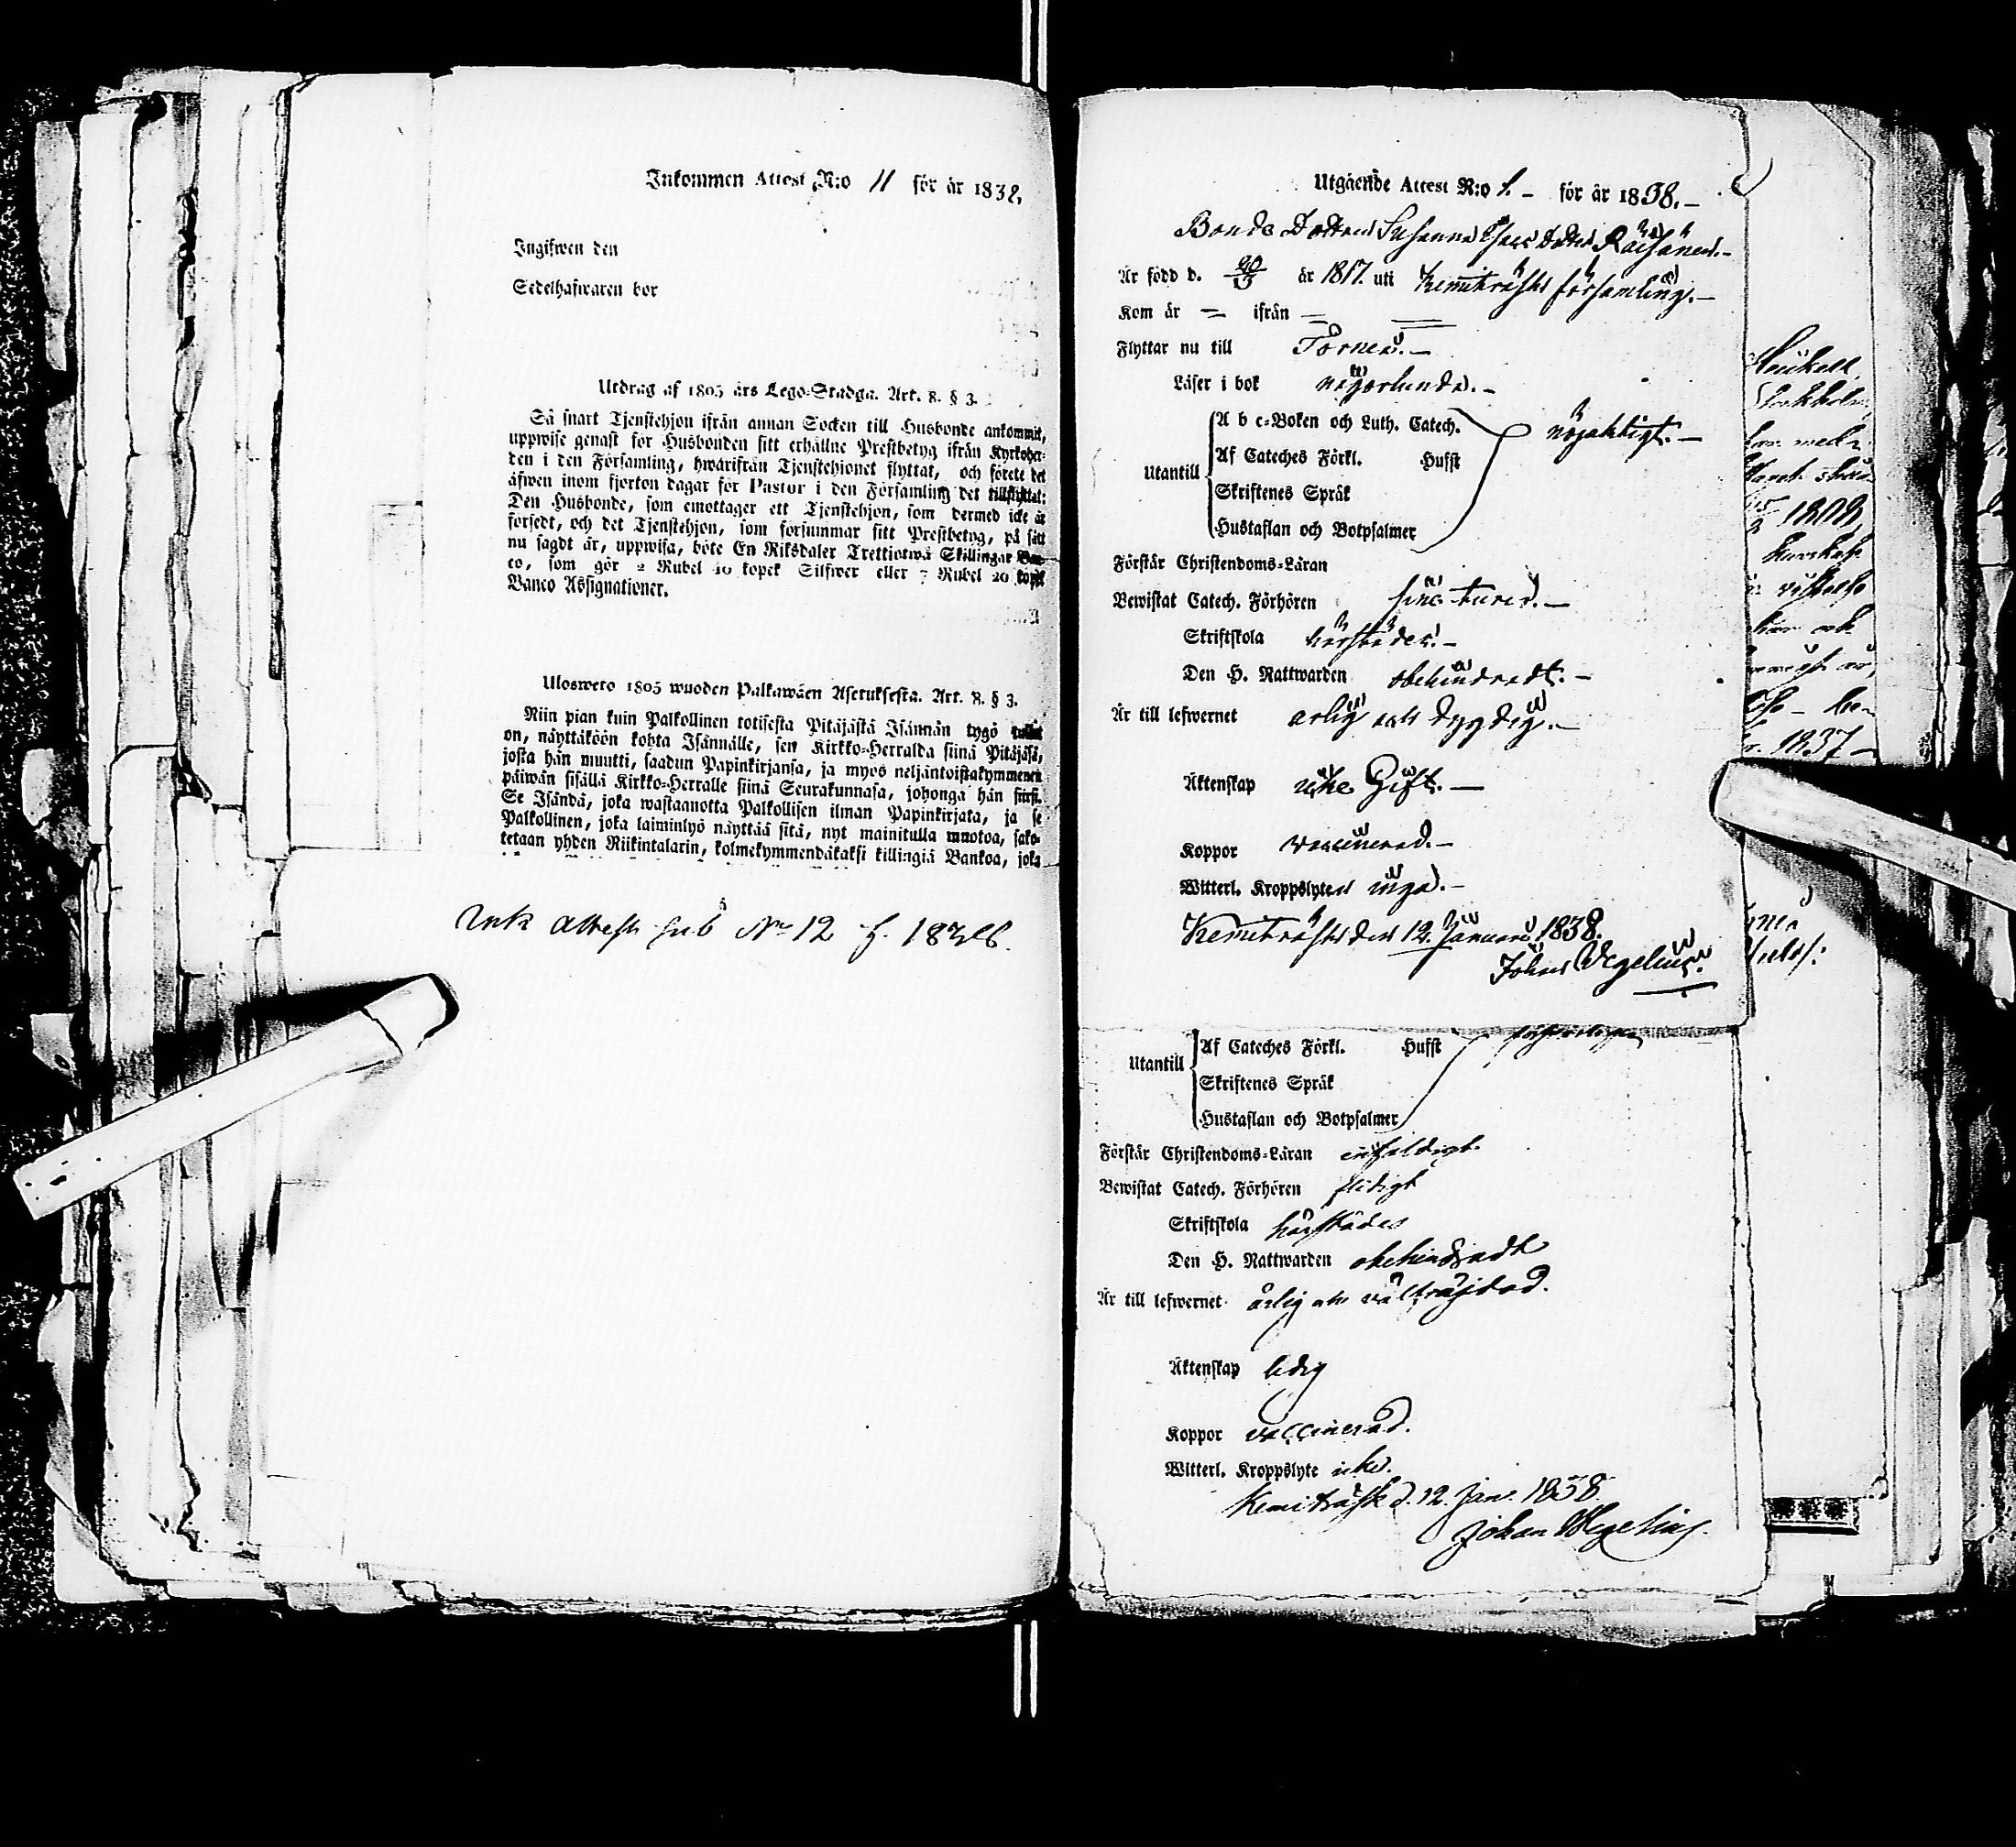 Inkommen Attest N:o 11 för år 1838.
Ingifwen den
Sedelhafwaren bor
Utdrag af 1805 års Lego-Stadga. Art. 8. § 3.
Så snart Tjenstehjon ifrån annan Socken till Husbonde ankommit,
uppwise genast för Husbonden sitt erhållne Prestbetyg ifrån Kyrkoher-
den i den Församling, hwarifrån Tjenstehjonet flyttat, och förete det
äfwen inom fjorton dagar för Pastor i den Församling det tillflyttat:
Den Husbonde, som emottager ett Tjenstehjon, som dermed icke är
försedt, och det Tjenstehjon, som försummar sitt Prestbetyg, på sätt
nu sagdt är, uppwisa, böte En Riksdaler Trettiotwå Skillingar Ban-
co, som gör 2 Rubel 10 kopek Silfwer eller 7 Rubel 20 kopek
Banco Assignationer.
Ulosweto 1805 wuoden Palkawäen Asetuksesta. Art. 8. § 3.
Niin pian kuin Palkollinen toisesta Pitäjästä Isännän tygö tullut
on, näyttäköön kohta Isännälle, sen Kirkko-Herralda siinä Pitäjäsä,
josta hän muutti, saadun Papinkirjansa, ja myös neljäntoistakymmenen
päiwän sisällä Kirkko-Herralle siinä Seurakunnasa, johonga hän siirsi.
Se Isändä, joka wastaanotta Palkollisen ilman Papinkirjata, ja se
Palkollinen, joka laiminlyö näyttää sitä, nyt mainitulla muotoa, sako-
tetaan yhden Riikintalarin, kolmekymmendäkaksi killingiä Bankoa, joka
Ink attest sub No 12 f. 1838
Utgående Attest N:o 1. – för år 1838. –
Bonde Dottren Susanna Dotter Räisänen. –
Är född d. 20/5 år 1817. uti Kemiträsks församling. –
Kom år = ifrån =
Flyttar nu till Torneå. –
Läser i bok någorlunda. –
A b c-Boken och Luth. Catech.
nöjaktigt. –
Utantill
Af Cateches Förkl. Hufst
Skriftenes Språk
Hustaflan och Botpsalmer
Förstår Christendoms-Läran
Bewistat Catech. Förhören sine turer. –
Skriftskola härstädes. –
Den H. Nattwarden obehindradt. –
Är till lefwernet ärlig och dygdig. –
Äktenskap icke Gift. –
Koppor vaccinerad. –
Witterl. Kroppslyten inga. –
Kemiträsk den 12. Januari 1838.
Johan Wegelius.
Utantill
Af Cateches Förkl. Hufst
Skriftenes Språk
Hustaflan och Botpsalmer
Förstår Christendoms-Läran enfaldigt
Bewistat Catech. Förhören flitigt
Skriftskola härstädes
Den H. Nattwarden obehindradt
Är till lefwernet ärlig och välfräjdad.
Äktenskap ledig
Koppor vaccinerad.
Witterl. Kroppslyte icke.
Kemiträsk d. 12. Jan. 1838.
Johan Wegelius.
1808
1837